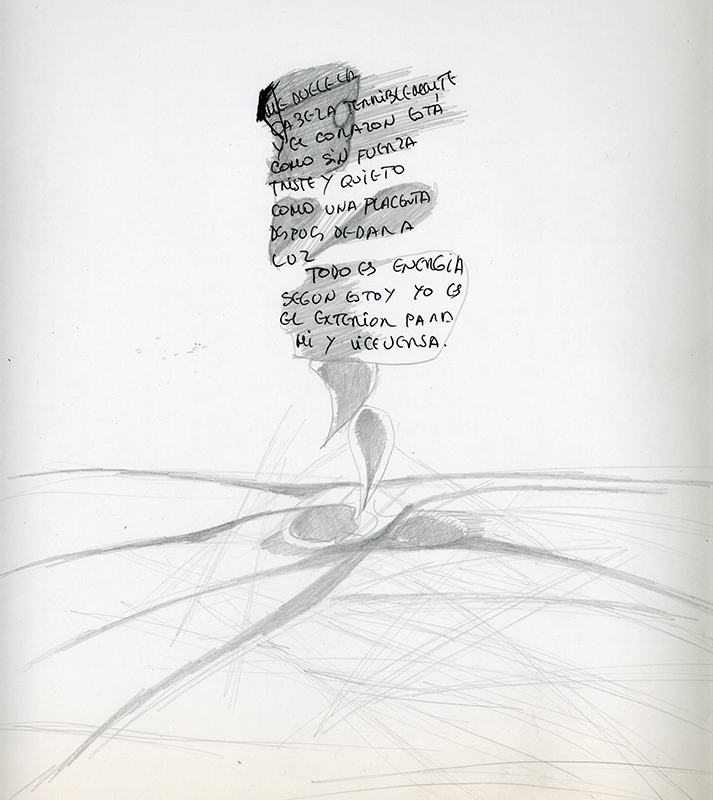 ME DUELE LA
CABEZA TERRIBLEMENTE
Y EL CORAZON ESTÁ
COMO SIN FUERZA
TRISTE Y QUIETO
COMO UNA PLACENTA
DSPUES DE DAR A
LUZ
TODO ES ENERGÍA
SEGUN ESTOY YO ES
EL EXTERIOR PARA
MI Y VICEVERSA.